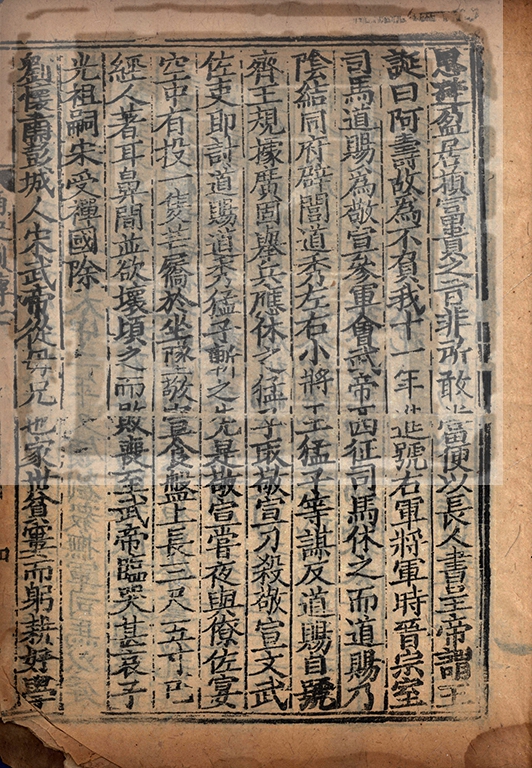 思避盈居損富貴之言非所敢當便以長人書呈帝謂王
誕曰阿壽故為不負我十一年進號右軍將軍時晉宗室
司馬道賜為敬宣參軍會武帝西征司馬休之而道賜乃
陰結同府辟閭道秀左右小將王猛子等謀反道賜自號
齊王規據廣固舉兵應休之猛子取敬宣刀殺敬宣文武
佐吏即討道賜道秀猛子斬之先是敬宣嘗夜與僚佐宴
空中有投一隻芒屩於坐墜敬宣食盤上長三尺五寸已
經人著耳鼻間並欲壞頃之而敗喪至武帝臨哭甚哀子
光祖嗣宋受禪國除
劉懷肅彭城人宋武帝從母兄也家世貧窶而躬耕好學